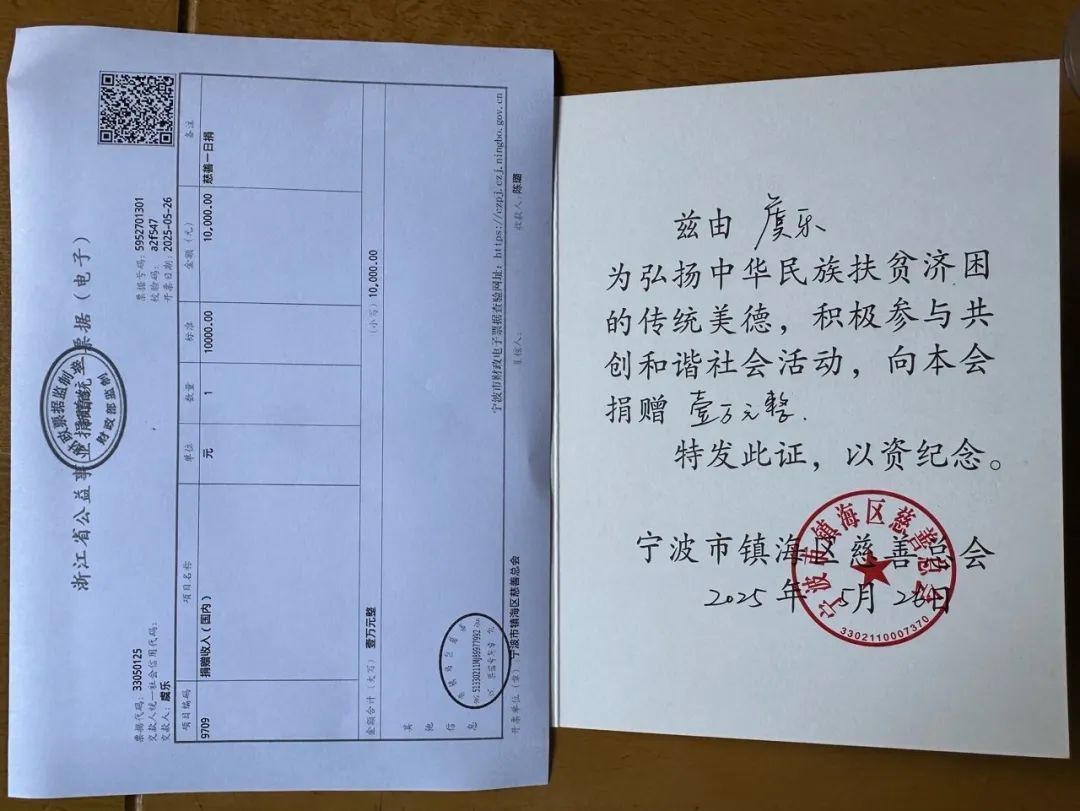 浙江省公益事业捐赠统一票据（电子）
财政部监制
票据代码：33050125
票据号码：5952701301
交款人统一社会信用代码：
校验码：a2f547
交款人：虞乐
开票日期：2025-05-26
项目编码 项目名称 单位 数量 标准 金额（元） 备注
9709 捐赠收入（国内） 元 1 10000.00 10,000.00 慈善一日捐
金额合计（大写）壹万元整 （小写）10,000.00
其他信息
宁波市财政电子票据查验网址：https://czpj.czj.ningbo.gov.cn
开票单位（章）：宁波市镇海区慈善总会 复核人： 收款人：陈璐
兹由 虞乐
为弘扬中华民族扶贫济困
的传统美德，积极参与共
创和谐社会活动，向本会
捐赠 壹万元整.
特发此证，以资纪念。
宁波市镇海区慈善总会
2025年5月26日
宁波市镇海区慈善总会
3302110007370